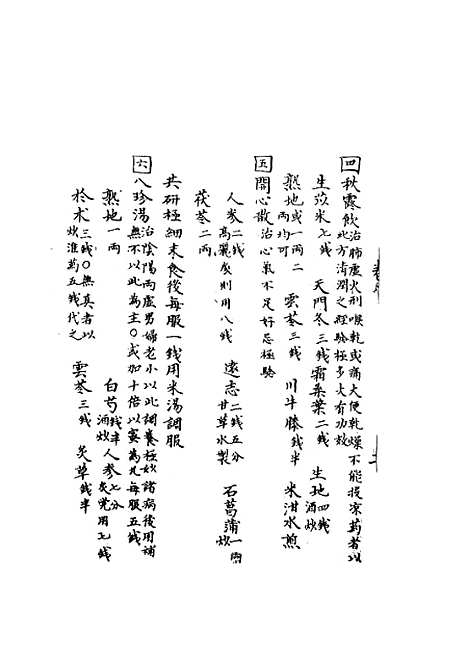 四 秋露飲 治肺虛火刑喉乾或痛大便乾燥不能投涼药者以
此方清潤之經驗極多大有功效
生苡米七錢 天門冬三錢 霜桑葉二錢 生地四錢酒炒
熟地或一兩二兩均可 雲苓三錢 川牛膝錢半 米泔水煎
五 開心散 治心氣不足好忘極驗
人参二錢高麗參則用八錢 遠志二錢五分甘草水製 石菖蒲一兩炒
茯苓二兩
共研極細末食後每服一錢用米湯調服
六 八珍湯 治陰陽兩虛男婦老小以此調養極妙諸病後用補
無不以此為主〇或加十倍以蜜為丸每服五錢
熟地一兩 白芍錢半酒炒 人参七分炙党用七錢
於术三錢炒〇無真者以淮药五錢代之 雲苓三錢 炙草錢半